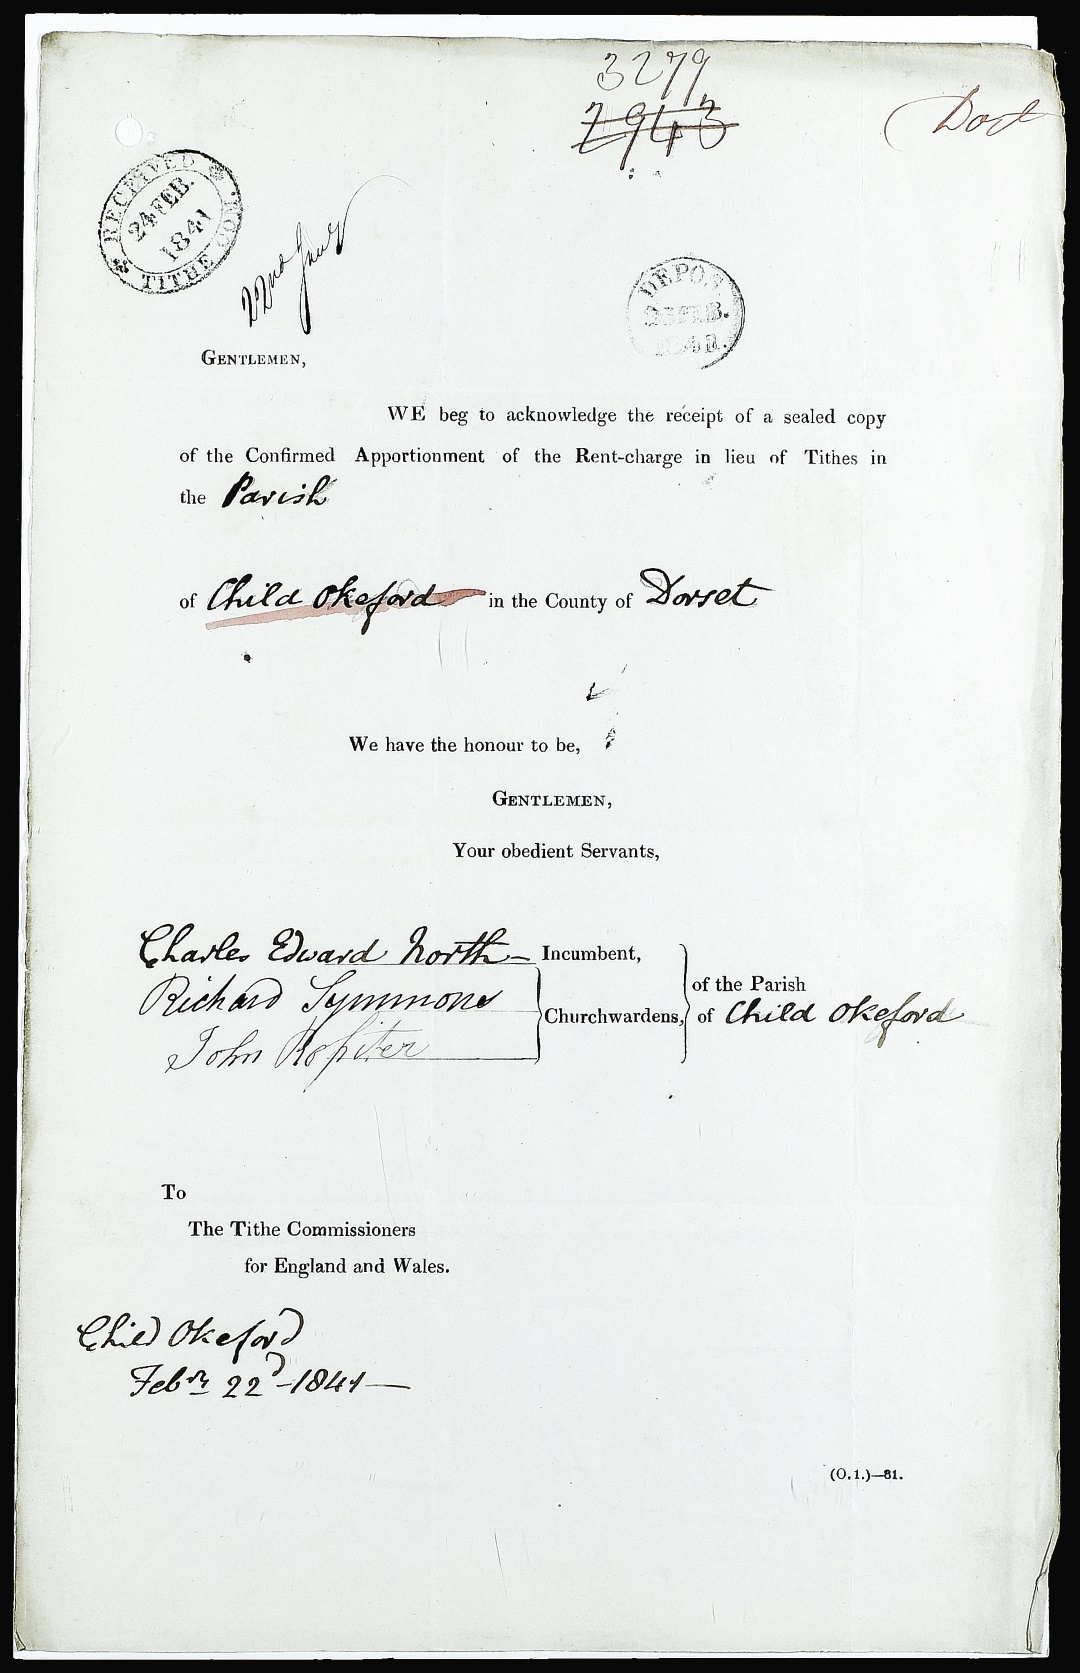 3279
7943
RECEIVED
24 FEB.
1841
TITHE
22nd Jany
DEPOS
FEB.
1841.
GENTLEMEN,
WE beg to acknowledge the receipt of a sealed copy
of the Confirmed Apportionment of the Rent-charge in lieu of Tithes in
the Parish
of Child Okeford in the County of Dorset
We have the honour to be,
GENTLEMEN,
Your obedient Servants,
Charles Edward North Incumbent,
Richard Symmons
John Rossiter
Churchwardens,
of the Parish
of Child Okeford
To
The Tithe Commissioners
for England and Wales.
Child Okeford
Febry 22d - 1841 —
(O. 1.)—81.